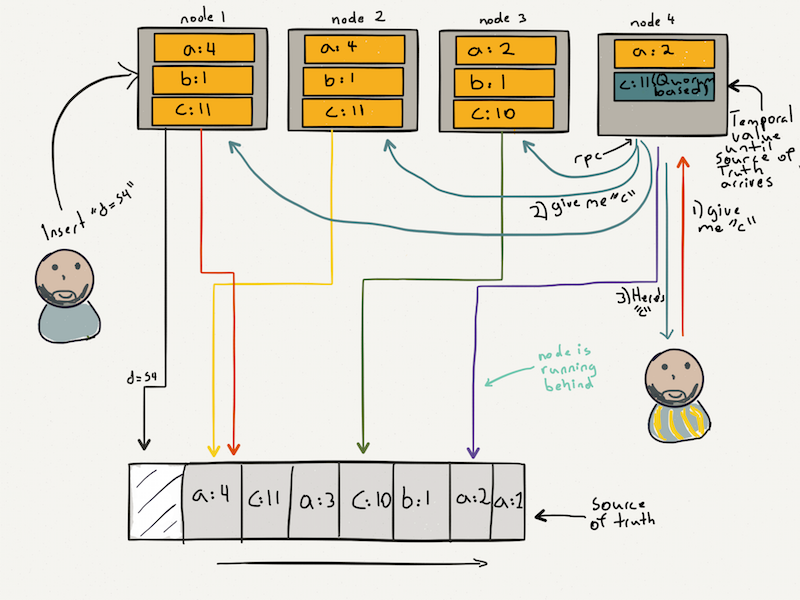 node 1
a:4
b:1
c:11
node 2
a:4
b:1
c:11
node 3
a:2
b:1
c:10
node 4
a:2
c:11(Quorum
based)
Temporal
value
until
source of
Truth
arrives
rpc
2) give me "c"
1) give
me "c"
3) Here's
"c"
Insert "d=54"
d=54
node is
running
behind
a:4
c:11
a:3
c:10
b:1
a:2
a:1
source
of truth